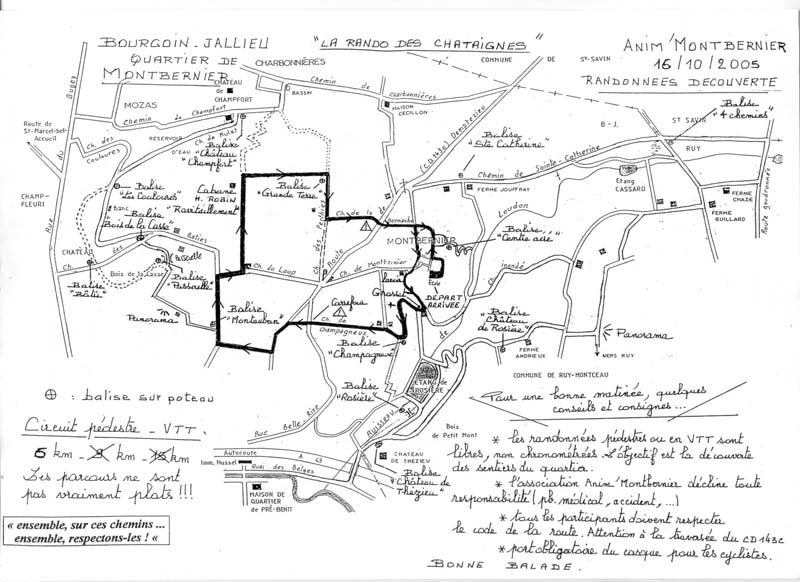 BOURGOIN-JALLIEU
QUARTIER DE
MONTBERNIER
"LA RANDO DES CHATAIGNES"
ANIM'MONTBERNIER
16/10/2005
RANDONNEES DECOUVERTE
CHARBONNIÈRES
COMMUNE DE ST-SAVIN
CHATEAU
DE
CHAMPFORT
BASSIN
Chemin de Charbonnières
MAISON
CECILLON
MOZAS
Chemin de Champfort
Route de
St-Marcel-bel-
Accueil
Ch. des
Couloures
RESERVOIR
D'EAU
Ch. de Mulet
Balise
"Château
Champfort"
(C.D 143c) Demptezieu
Balise
"Ste Catherine"
B-J.
ST SAVIN
RUY
Balise
"4 chemins"
Chemin de Sainte-Catherine
FERME JOUFFRAY
Etang
CASSARD
FERME
CHAZE
FERME
GUILLARD
Route goudronnée
CHAMP-
FLEURI
Rue du Bugey
Balise
"Les Couloures"
Cabane
H. ROBIN
"Ravitaillement"
Balise
"Grande Terre"
Banc
Balise
"Bois de la Casse"
CHATEAU
Ch. des Baties
Bois de la Casse
Passerelle
Balise
"Bâtie"
Balise
"Passerelle"
Panorama
Ch. du Loup
Ch. des Perves
Route
Ch. de la Bernache
MONTBERNIER
Ch. de Montbernier
Ecole
Balise
"Centre aéré"
Loudon
Ch. inendé
DÉPART
ARRIVÉE
Balise
"Montauban"
Carrefour
Ch. de Champagneux
Balise
"Champagneux"
Balise
Château
de Rosière"
FERME
ANDRIEUX
Panorama
VERS RUY
COMMUNE DE RUY-MONTCEAU
Balise
"Rosière"
ETANG de
ROSIÈRE
Ruisseau
Rue Belle Rive
Bois
de Petit Mont
⊕ : balise sur poteau
Circuit pédestre - VTT.
6 km - 8 km - 15 km
Les parcours ne sont
pas vraiment plats !!!
« ensemble, sur ces chemins ...
ensemble, respectons-les ! «
Autoroute A 43
Imm. Mussel
Quai des Belges
MAISON DE
QUARTIER
DE PRÉ-BENIT
CHATEAU
DE THEZIEU
Balise
"Château de
Thézieu"
Pour une bonne matinée, quelques
conseils et consignes...
* les randonnées pédestres ou en VTT sont
libres, non chronométrées. L'objectif est la découverte
des sentiers du quartier.
* l'association Anim'Montbernier décline toute
responsabilité (pb. médical, accident, ...)
* tous les participants doivent respecter
le code de la route. Attention à la traversée du CD143C
* port obligatoire du casque pour les cyclistes.
BONNE BALADE.